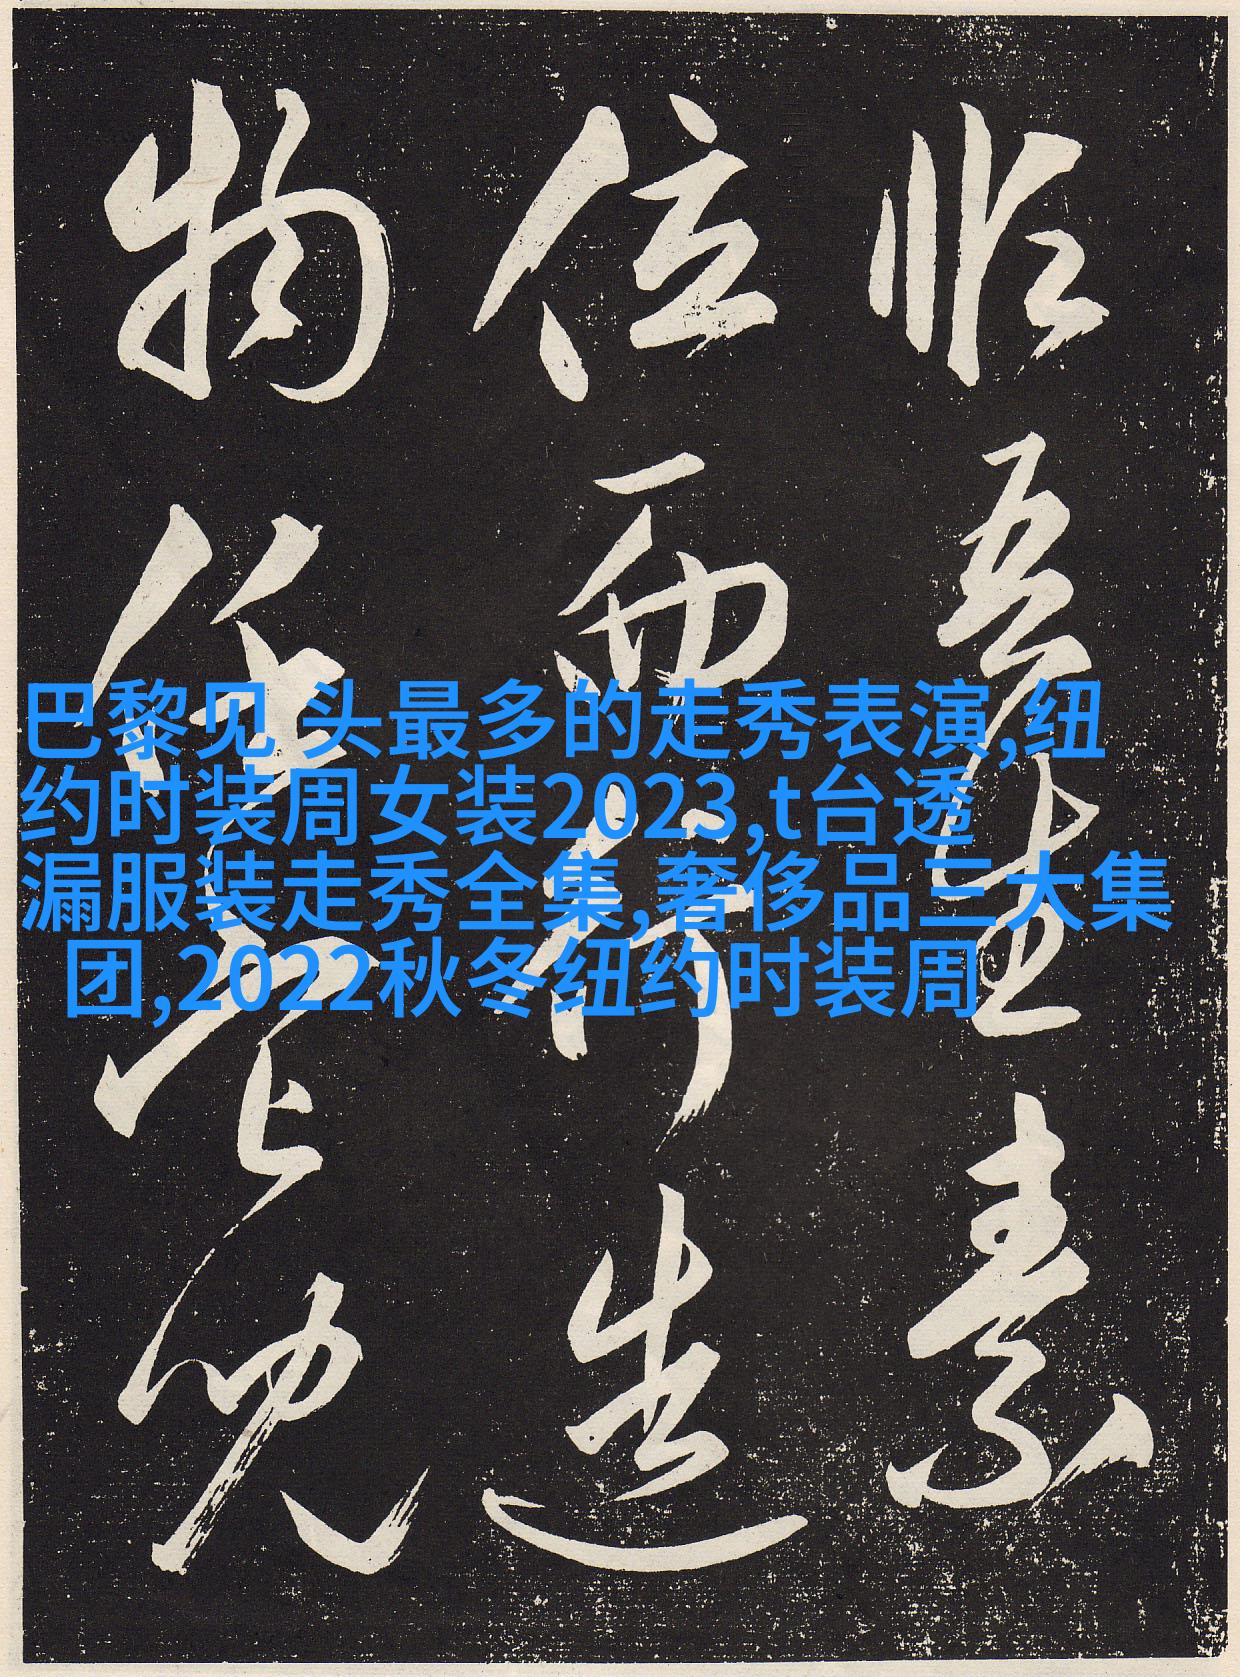 巴黎见 头最多的走秀表演,纽
约时装周女装2023,t台透
漏服装走秀全集,奢侈品三大集
团,2022秋冬纽约时装周
吾生素
位而行造
物